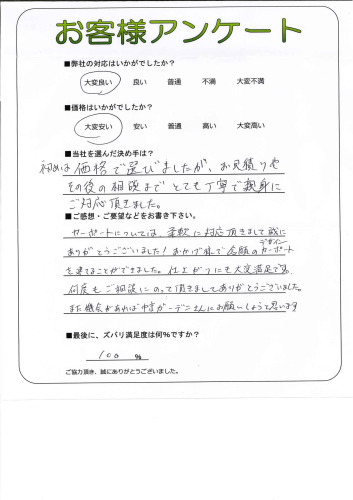 お客様アンケート
■弊社の対応はいかがでしたか?
大変良い 良い 普通 不満 大変不満
■価格はいかがでしたか?
大変安い 安い 普通 高い 大変高い
■当社を選んだ決め手は?
初めは価格で選びましたが、お見積りや
その後の相談までとても丁寧で親身に
ご対応頂きました。
■ご感想・ご要望などをお書き下さい。
カーポートについては、柔軟に対応頂きまして誠に
ありがとうございました!おかげ様で念願のデザインカーポート
を建てることができました。仕上がりにも大変満足です。
何度もご相談にのって頂きましてありがとうございました。
また機会があればガーデンさんにお願いしようと思います
■最後に、ズバリ満足度は何%ですか?
100 %
ご協力頂き、誠にありがとうございました。